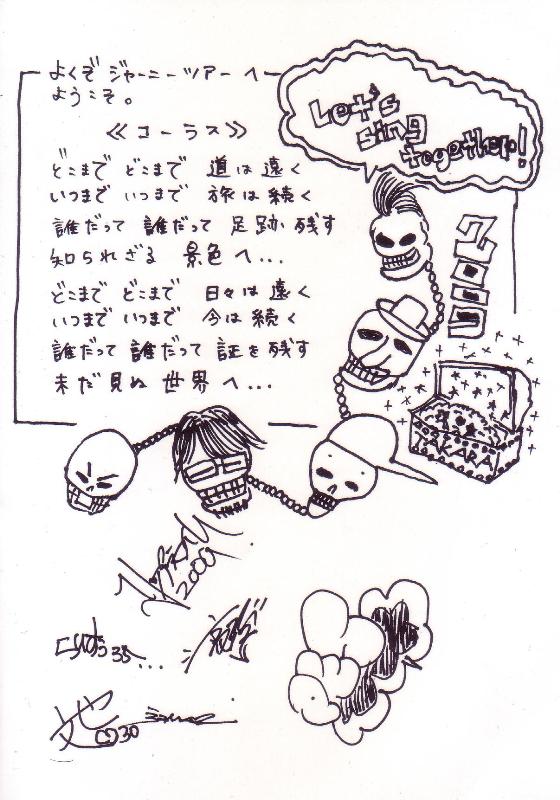 よくぞ ジャーニーツアーへ
ようこそ。
Let's
sing
together!
≪コーラス≫
どこまで どこまで 道は遠く
いつまで いつまで 旅は続く
誰だって 誰だって 足跡 残す
知られざる 景色へ...
どこまで どこまで 日々は遠く
いつまで いつまで 今は続く
誰だって 誰だって 証を残す
未だ見ぬ 世界へ...
2009
TAKARA
2009